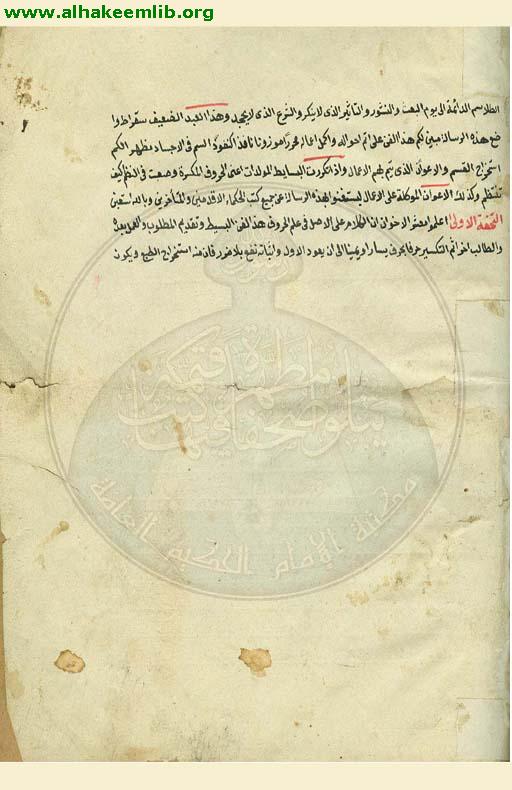 www.alhakeemlib.org
الطلاسم الدائمة الى يوم البعث والنشور والتاثير الذى لا ينكر والنوع الذى لا يجحد وهذا العبد الضعيف سقراط وا
ضع هذه الرسالة مبنى لكم هذا الفن على اتم احواله واكمل اعماله محررا موزونا نافذ كنفوذ السم فى الاجساد مظهر الكم
استخراج القسم والاعوان الذى يتم بهم الاعمال واذا كررت البسايط المولدات اعنى الحروف المكسرة وصعت فى النظم كيف
تنتظم وكذلك الاعوان الموكلة على الاعمال ليستغنوا بهذه الرسالة عن جميع كتب الحكما الاقدمين والمتأخرين وبالله استعين
التحفة الاولى اعلموا معشر الاخوان ان الكلام على الاصل فى علم الحروف هذا الفن البسيط وتقديم المطلوب والعمل بعده
والطالب اخر اثم التكسير حرفا بحرف يسارا ويمينا الى ان يعود الاول ولثباته تقع بلا ضرر فان منه استخراج الطبع ويكون
ما مطهرة فيها كتب قيمة
يتلو صحفا
مكتبة الإمام الحكيم العامة